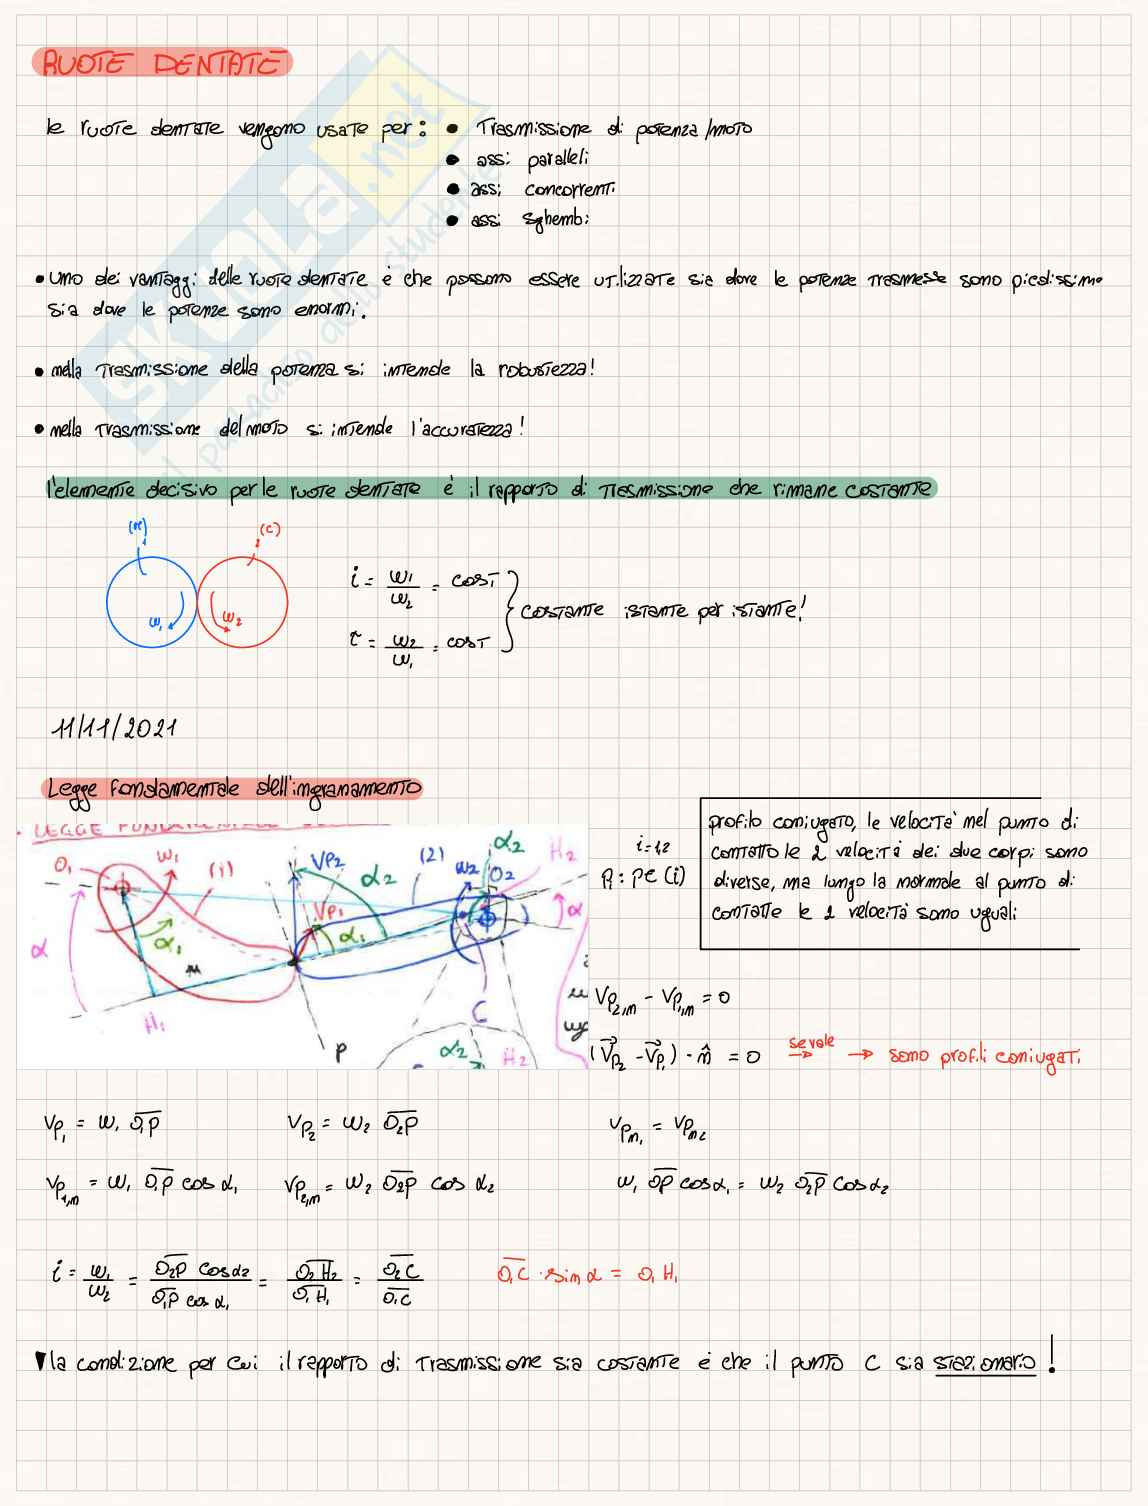 RUOTE DENTATE
le ruote dentate vengono usate per: • Trasmissione di potenza/moto
• assi paralleli
• assi concorrenti
• assi sghembi
• uno dei vantaggi delle ruote dentate è che possono essere utilizzate sia dove le potenze trasmesse sono piccolissime
sia dove le potenze sono enormi.
• nella trasmissione della potenza si intende la robustezza!
• nella trasmissione del moto si intende l'accuratezza!
l'elemento decisivo per le ruote dentate è il rapporto di trasmissione che rimane costante
(M) 1
(C) 2
ω₁ ω₂
i = ω₁/ω₂ = cost
τ = ω₂/ω₁ = cost
costante istante per istante!
11/11/2021
Legge fondamentale dell'ingranamento
O₁ ω₁ (1) VP₂ α₂ (2) ω₂ O₂ α₂ H₂
α α₁ VP₁ α₁ α
H₁ P C α₂ H₂
i=1,2
Pᵢ: P∈(i)
profilo coniugato, le velocità nel punto di
contatto le 2 velocità dei due corpi sono
diverse, ma lungo la normale al punto di
contatto le 2 velocità sono uguali
V_P₂,n - V_P₁,n = 0
(V⃗_P₂ - V⃗_P₁) · n̂ = 0 se vale → → sono profili coniugati
V_P₁ = ω₁ O₁P V_P₂ = ω₂ O₂P V_Pn₁ = V_Pn₂
V_P₁,n = ω₁ O₁P cos α₁ V_P₂,n = ω₂ O₂P cos α₂ ω₁ O₁P cos α₁ = ω₂ O₂P cos α₂
i = ω₁/ω₂ = O₂P cos α₂ / O₁P cos α₁ = O₂H₂/O₁H₁ = O₂C/O₁C O₁C · sin α = O₁H₁
▼ la condizione per cui il rapporto di trasmissione sia costante è che il punto C sia stazionario!
SKUOLA.net